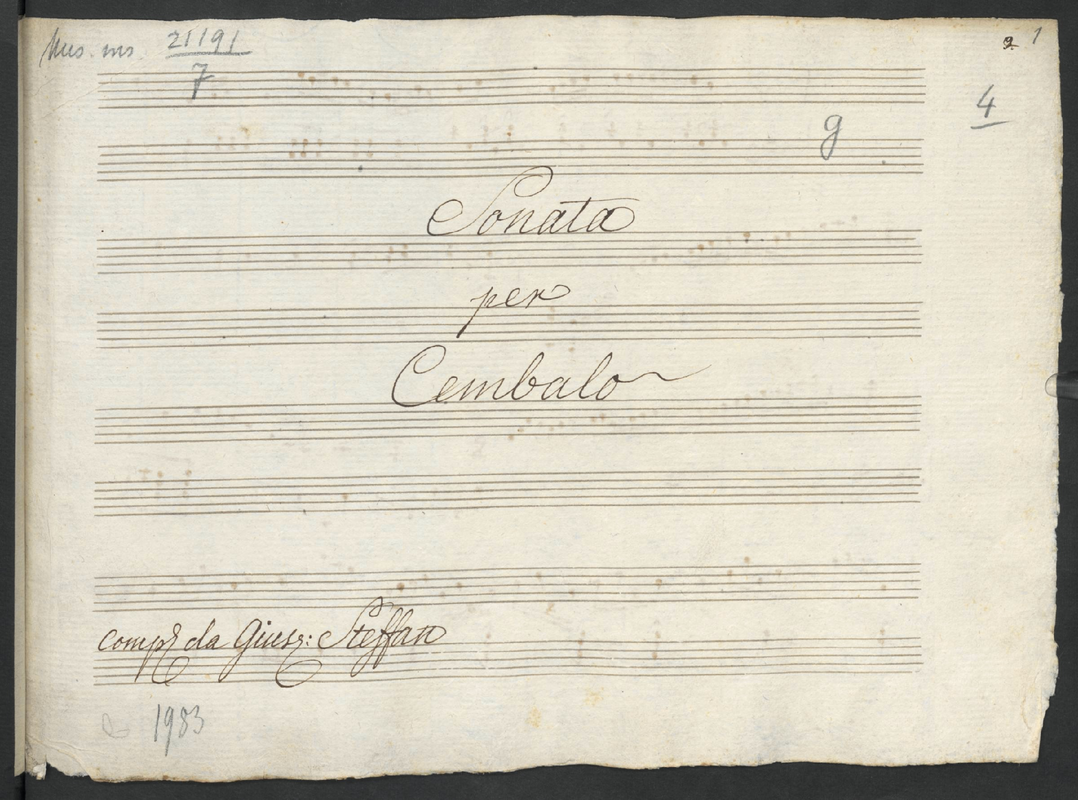 Mus. ms. 21191
7
9. 1
4
g
Sonata
per
Cembalo
da Giusep: Steffan
1983